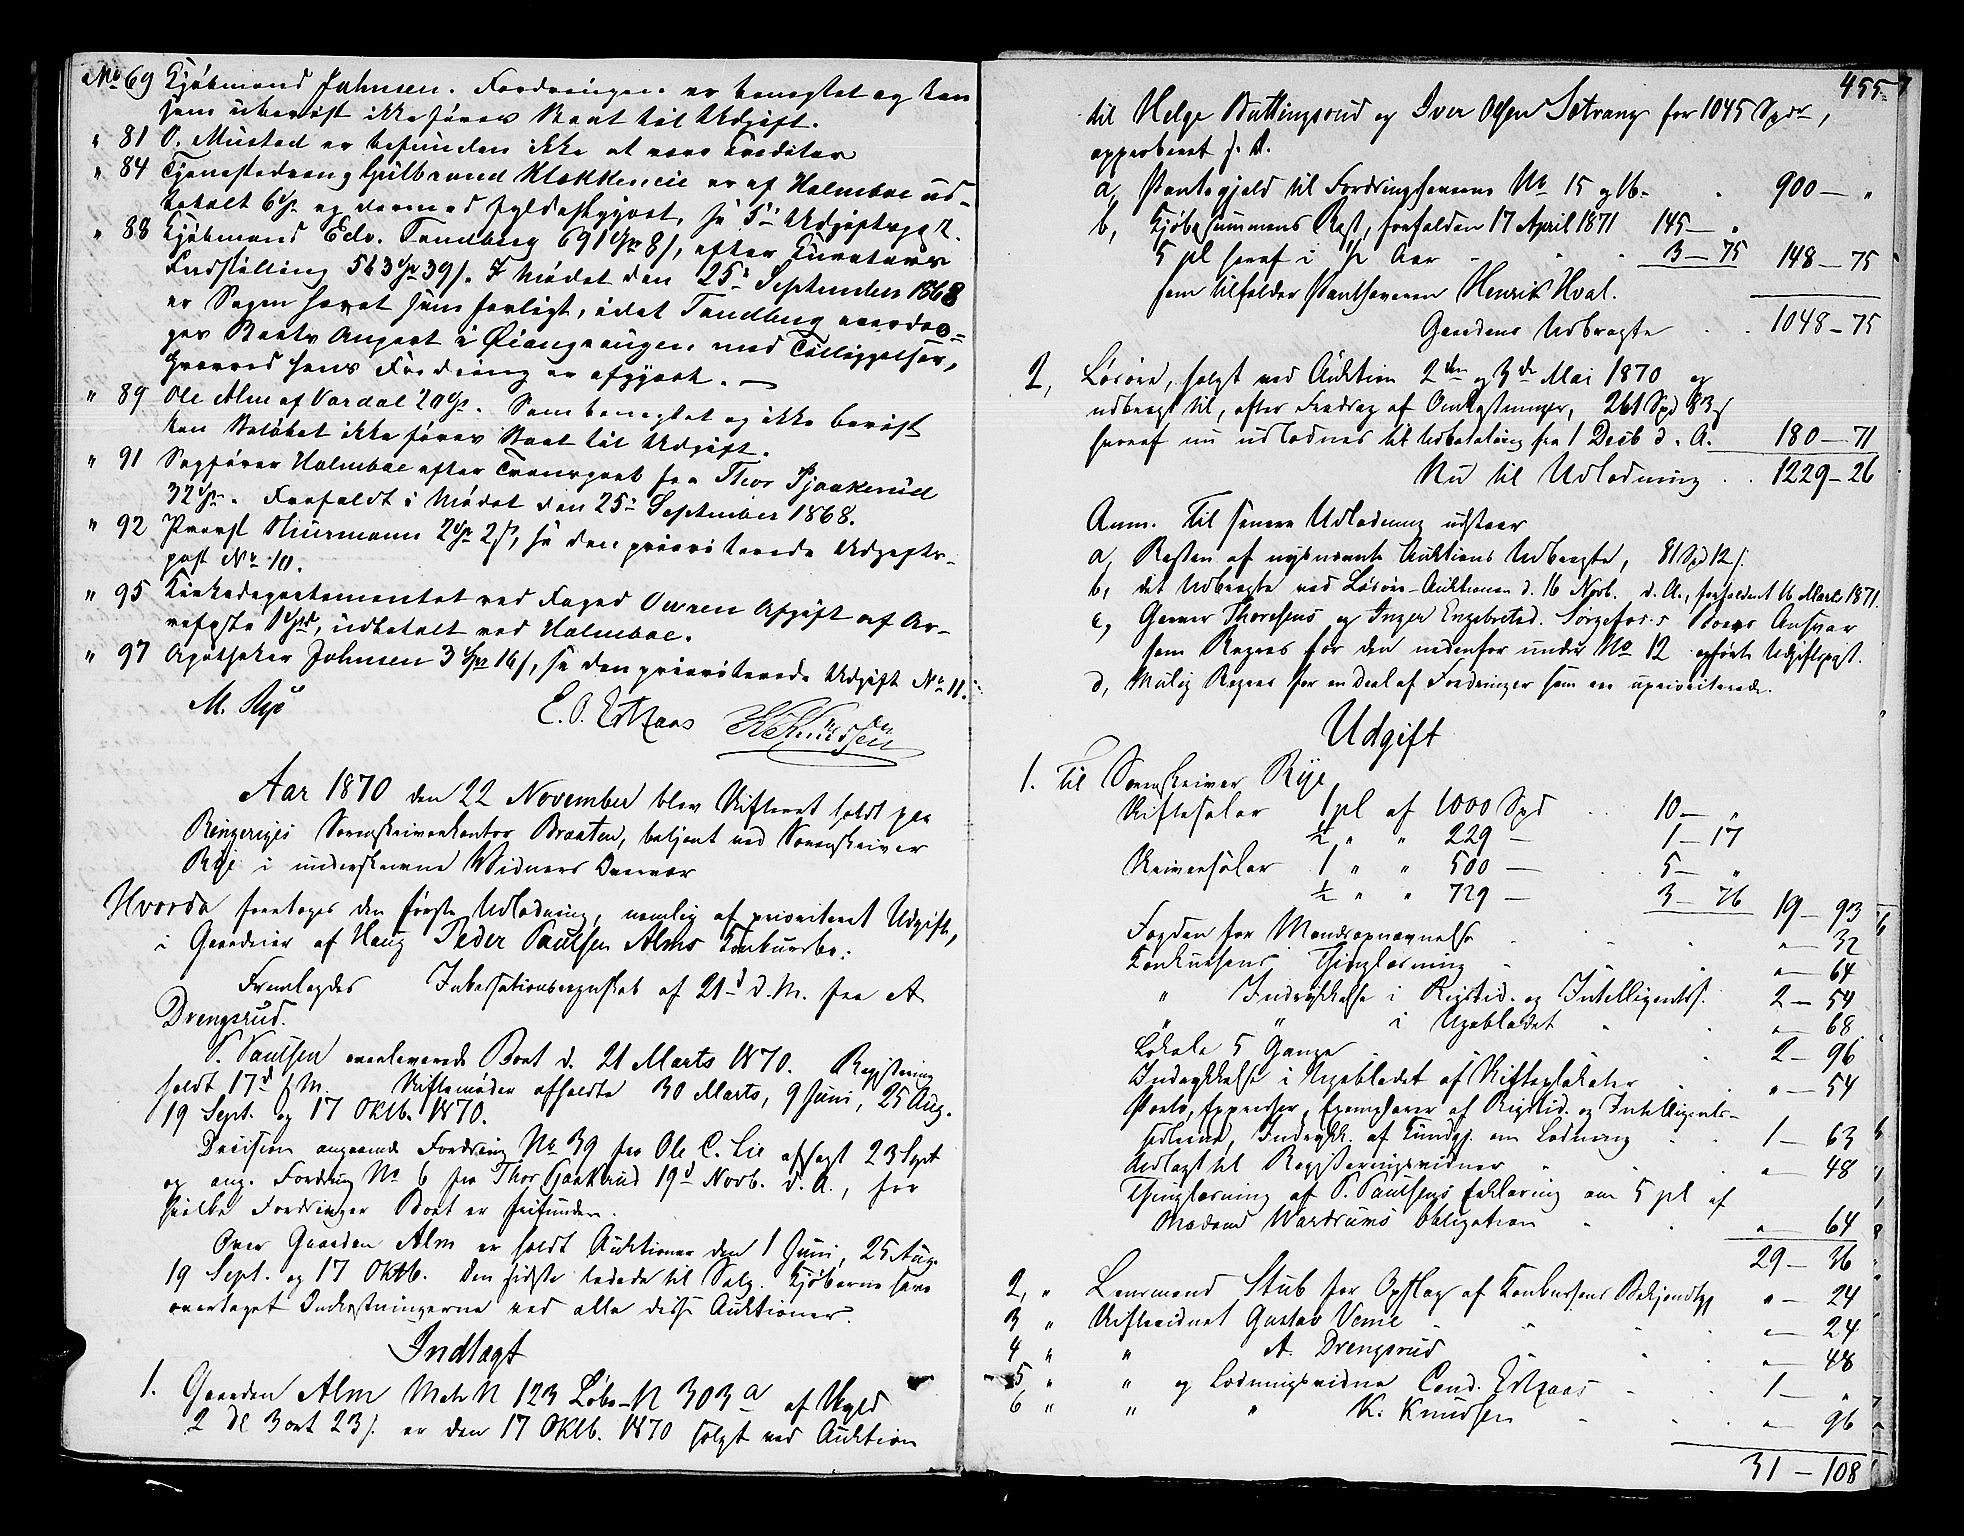 No 69 Kjøbmand Johnsen. Fordringen er benegtet og kan
som ubevist ikke føres Boet til Udgift.
" 81 O. Mustad er befunden ikke at være Creditor
" 84 Tjenestedreng Gulbrand Klækkeneie er af Holmboe ud-
betalt 6 Spd og dermed fyldestgjort, se 5te Udgiftspost.
" 88 Kjøbmand Edv. Tandberg 691 Spd 8 s, efter Curators
Indstilling 563 Spd 39 s. I Mødet den 25de September 1868
er Sagen hævet som forligt, idet Tandberg overdra-
ger Boets Anpart i Øiangsaugen med Tilliggelser,
hvorved hans Fordring er afgjort. —
" 89 Ole Alm af Vardal 20 Spd. Som benegtet og ikke bevist
kan Beløbet ikke føres Boet til Udgift.
" 91 Sagfører Holmboe efter Transport fra Thor Tjaakerud
32 Spd. Frafaldt i Mødet den 25de September 1868.
" 92 Provst Hiurmann 2 Spd 2 s, se den prioriterede Udgifts-
post No 10.
" 95 Kirkedepartementet ved Foged Owren Afgift af Ar-
vefæste 1 Spd, udbetalt ved Holmboe.
" 97 Apotheker Johnsen 3 Spd 16 s, se den prioriterede Udgift No 11.
M. Rye E. O. Estkaas K. Knudsen
Aar 1870 den 22 November blev Skifteret holdt paa
Ringeriges Sorenskriverkontor Braaten, betjent ved Sorenskriver
Rye i underskrevne Vidners Overvær
Hvorda foretoges den første Udlodning, nemlig af prioriteret Udgift,
i Gaardeier af Haug Peder Paulsen Alms Konkursbo.
Fremlagdes Inkassationsregnskab af 21de d. M. fra A
Drengsrud.
P. Paulsen overleverede Boet d. 21 Marts 1870. Registrering
holdt 17de s. M. Skiftemøder afholdte 30 Marts, 9 Juni, 25 Aug.
19 Sept. og 17 Oktb. 1870.
Decision angaaende Fordring No 39 fra Ole C. Lie afsagt 23 Sept
og ang. Fordring No 6 fra Thor Tjaakrud 19de Novb. d. A., for
hvilke Fordringer Boet er frifunden.
Over Gaarden Alm er holdt Auktioner den 1 Juni, 25 Aug.
19 Sept. og 17 Oktb. Den sidste ledede til Salg. Kjøberne have
overtaget Omkostningerne ved alle disse Auktioner.
Indtægt
1. Gaarden Alm Matr N 123 Løbe-N 303a af Skyld
2 Dl 3 ort 23 s. er den 17 Oktb. 1870 solgt ved Auktion
455
til Helge Buttingsrud og Iver Olsen Setrang for 1045 Spd,
approberet s. D.
a, Pantegjeld til Fordringshaverne No 15 og 16 - 900 — "
b, Kjøbesummens Rest, forfalden 17 April 1871 145 — "
5 pCt heraf i ½ Aar 3 — 75 148 — 75
som tilfalder Panthaveren Henrik Hval.
Gaardens Udbragte 1048 — 75
2, Løsøre, solgt ved Auktion 2den og 3de Mai 1870 og
udbragt til, efter Fradrag af Omkostninger, 261 Spd 83 s
hvoraf nu udlodnes til Udbetaling fra 1 Decb d. A. 180 — 71
Nu til Udlodning 1229 — 26
Anm. Til senere Udlodning udstaar
a, Resten af nysnævnte Auktions Udbragte, 81 Spd 12 s.
b, det Udbragte ved Løsøre-Auktionen d. 16 Novb. d. A., forfaldent 16 Marts 1871.
c, Gerner Thoresens og Inger Engebretsd. Sørgefoss Boers Ansvar
som Regres for den nedenfor under No 12 opførte Udgiftspost.
d, Mulig Regres for en Deel af Fordringer som ere uprioriterede.
Udgift
1. Til Sorenskriver Rye
Skiftesalær 1 pCt af 1000 Spd 10 — "
½ " " 229 — 1 — 17
Skriversalær 1 " " 500 — 5 — "
½ " " 729 — 3 — 76 19 — 93
Fogden for Mandsopnævnelse " — 32
Konkursens Thinglæsning " — 64
" Indrykkelse i Rigstid. og Intelligentss. 2 — 54
" " i Ugebladet " — 68
Lokale 5 Gange 2 — 96
Indrykkelse i Ugebladet af Skifteplakater " — 54
Porto, Expresser, Exemplarer af Rigstid. og Intelligents-
sedlerne, Indrykk. af Kundgj. om Lodning 1 — 63
Udlagt til Registreringsvidner " — 48
Thinglæsning af P. Paulsens Erklæring om 5 pCt af
Madame Wardrums Obligation " — 64
29 — 36
2, " Lensmand Stub for Opslag af Konkursens Bekjendtg " — 24
3 " Skiftevidnet Gustav Veme " — 24
4 " " A. Drengsrud " — 48
5 " " og Lodningsvidne Cand. Estkaas 1 — "
6 " " " K. Knudsen " — 96
31 — 108